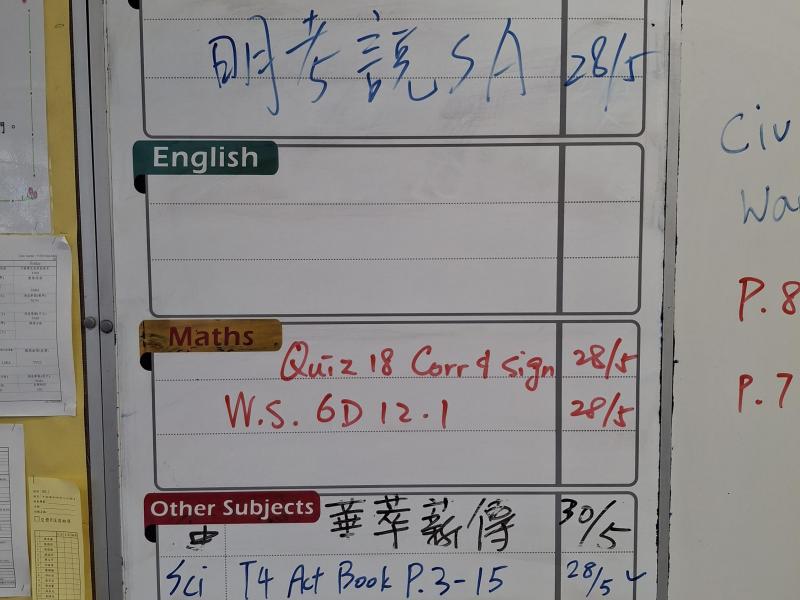 明考説 SA 28/5
English
Maths
Quiz 18 Corr & sign 28/5
W.S. 6D 12.1 28/5
Other Subjects
中 華萃薪傳 30/5
Sci T4 Act Book P.3-15 28/5 ✓
Civ
Wa
P.8
P.7